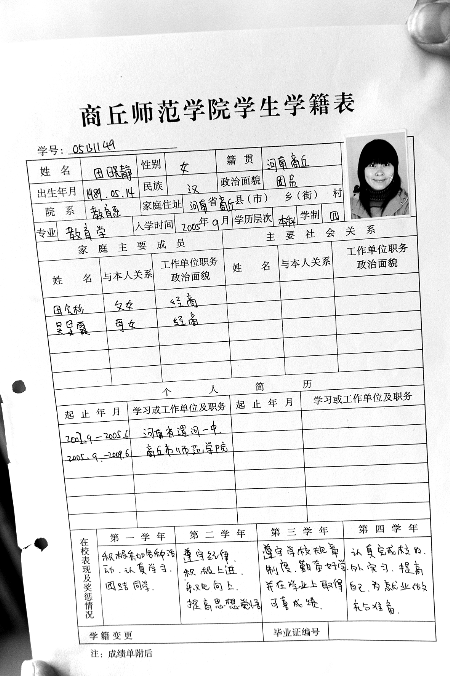 商丘师范学院学生学籍表
学号：05131149
姓名 田晓静 性别 女 籍贯 河南商丘
出生年月 1989.05.14 民族 汉 政治面貌 团员
院系 教育系 家庭住址 河南省商丘县（市） 乡（街） 村
专业 教育学 入学时间 2005年9月 学历层次 本科 学制 四
家庭主要成员 主要社会关系
姓名 与本人关系 工作单位职务政治面貌 姓名 与本人关系 工作单位职务政治面貌
父女 经商
母女 经商
个人简历
起止年月 学习或工作单位及职务 起止年月 学习或工作单位及职务
河南省 一中
2005.9—2009.6 商丘市师范学院
在校表现及奖惩情况
第一学年 第二学年 第三学年 第四学年
积极参加各种活动，认真学习，团结同学。
遵守纪律，积极上进，提高思想觉悟
遵守学校规章制度，勤奋好学，并在学业上取得可喜成绩。
认真完成校内外实习，提高自己，为就业做充分准备。
学籍变更 毕业证编号
注：成绩单附后